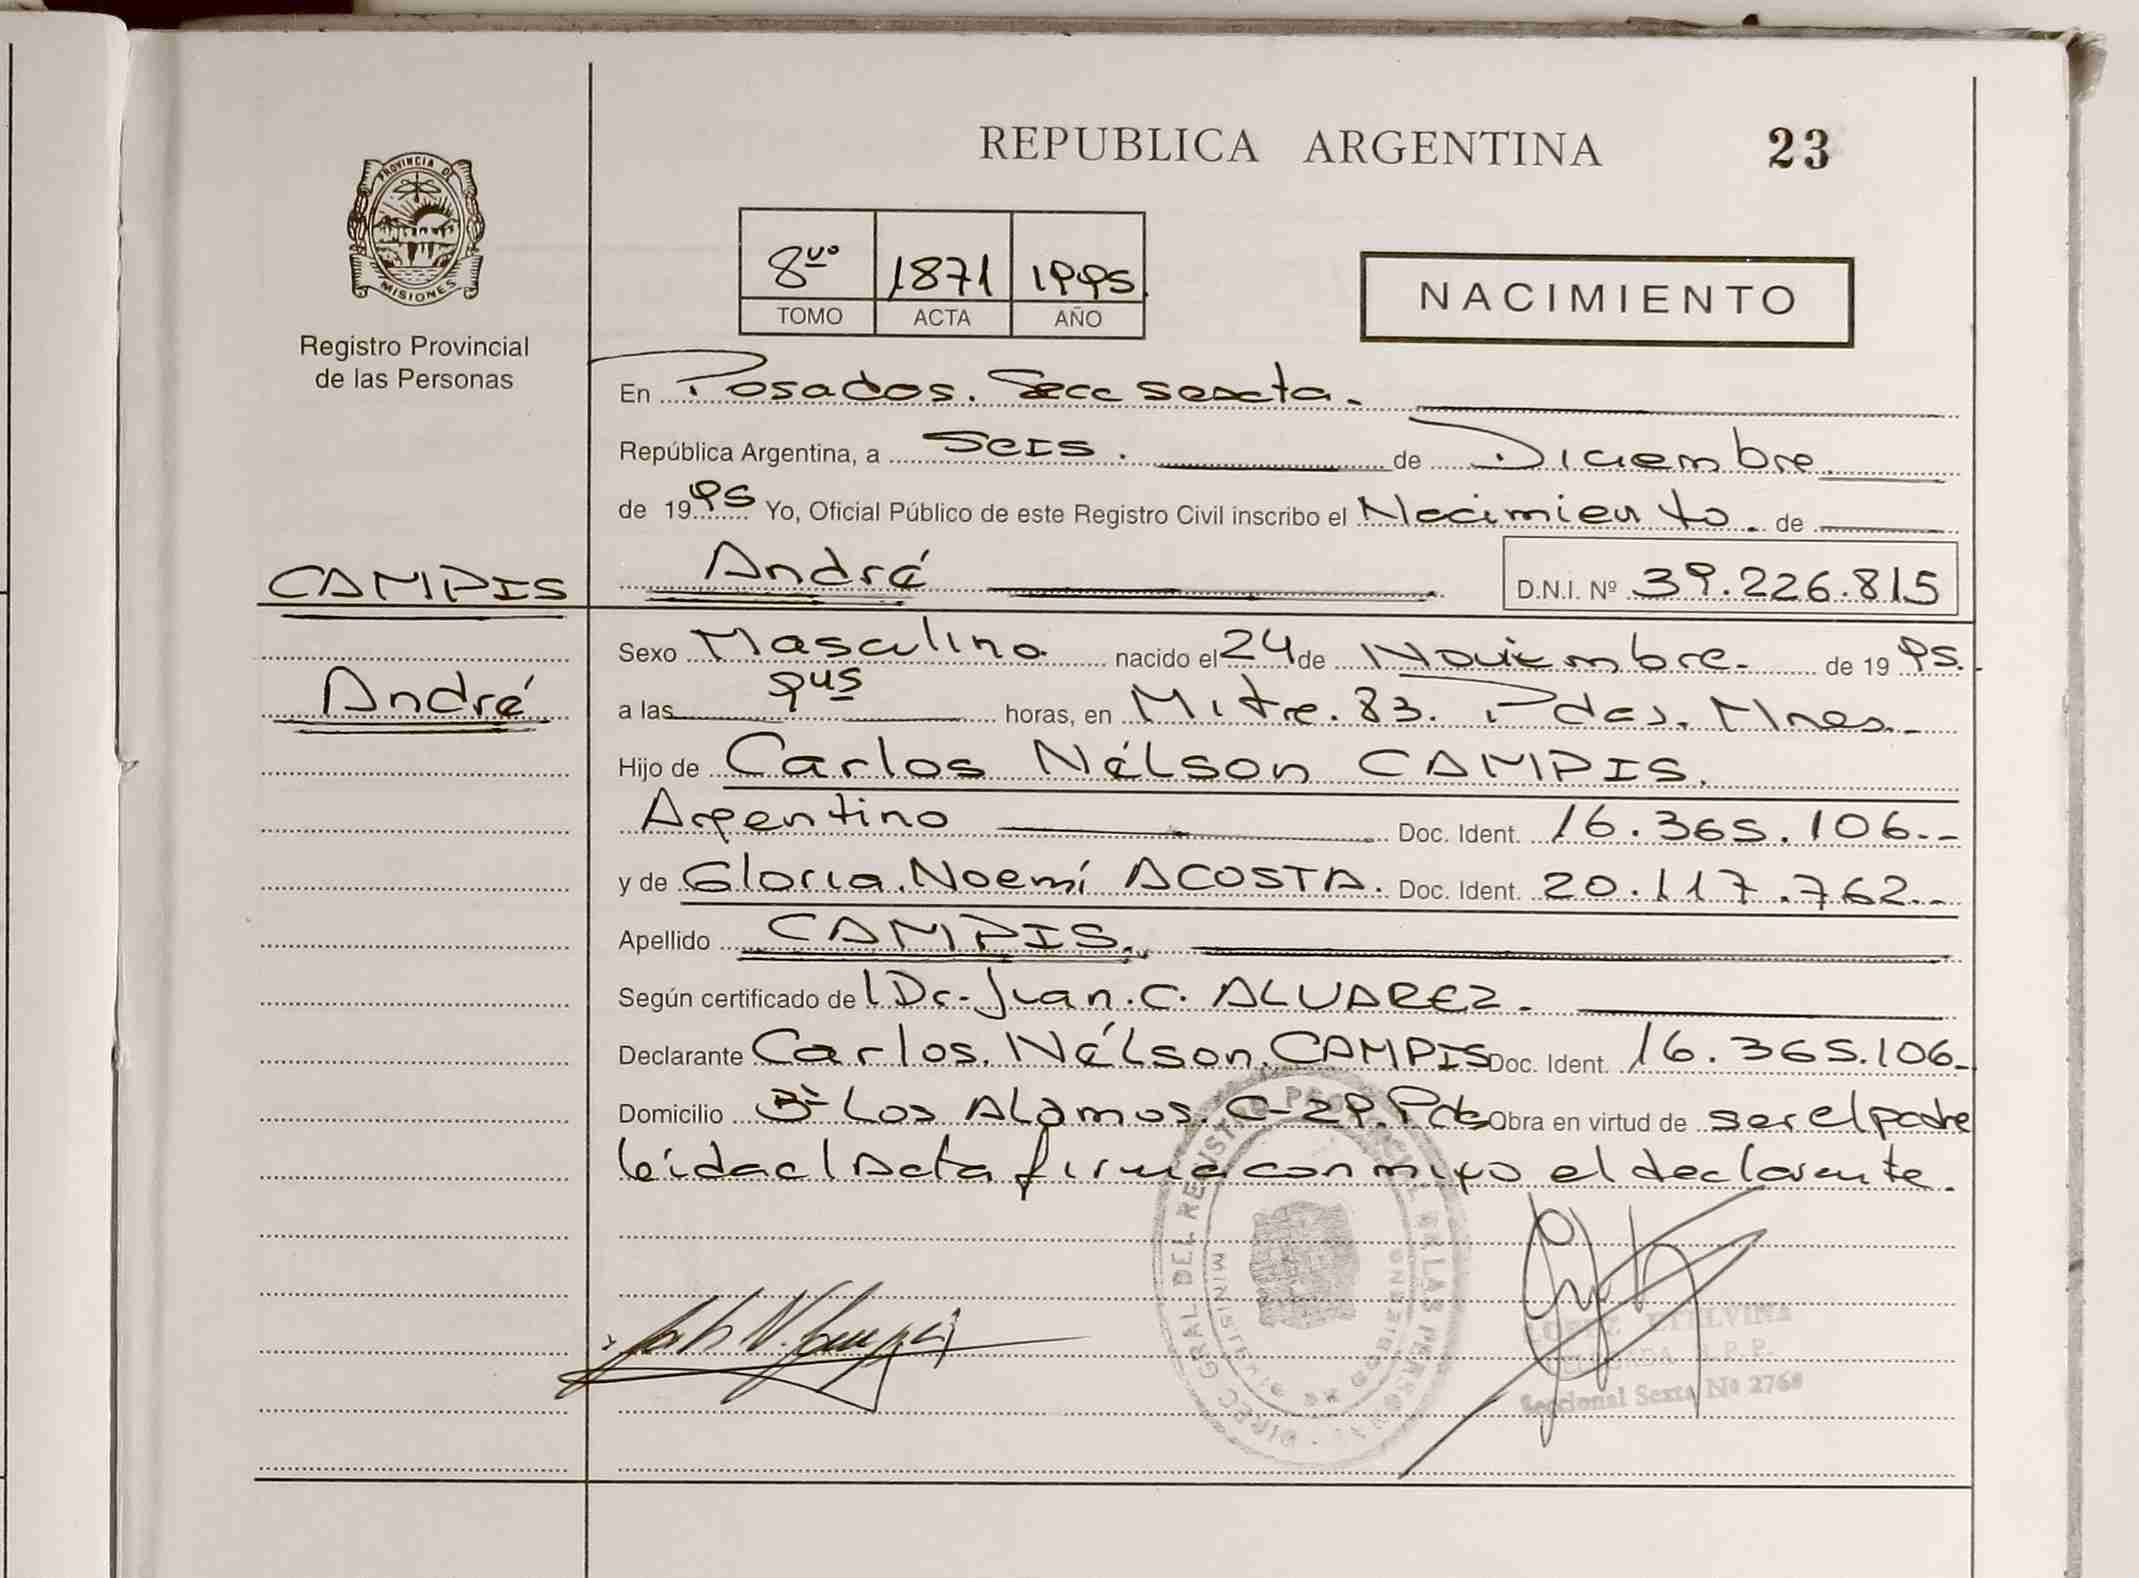 REPUBLICA ARGENTINA 23
PROVINCIA DE
MISIONES
Registro Provincial
de las Personas
8vo 1871 1995
TOMO ACTA AÑO
NACIMIENTO
En Posadas. Secc sexta.
República Argentina, a Seis. de Diciembre
de 1995 Yo, Oficial Público de este Registro Civil inscribo el Nacimiento. de
CAMPIS
André D.N.I. Nº 39.226.815
Sexo Masculino nacido el 24 de Noviembre. de 1995.
André
a las 9 45 horas, en Mitre. 83. Pdas. Mnes.
Hijo de Carlos Nélson CAMPIS.
Argentino Doc. Ident. 16.365.106.--
y de Gloria. Noemí ACOSTA. Doc. Ident. 20.117.762.--
Apellido CAMPIS.
Según certificado de l Dr. Juan. C. ALVAREZ.
Declarante Carlos. Nélson. CAMPIS Doc. Ident. 16.365.106-
Domicilio Bº Los Alamos. C-29. Pdas Obra en virtud de ser el padre
leida el Acta firma conmigo el declarante.
DIREC GRAL DEL REGISTRO PROVINCIAL DE LAS PERSONAS
MINISTERIO DE GOBIERNO
LOPEZ ETELVINA
DELEGADA R.P.P.
Seccional Sexta Nº 2760